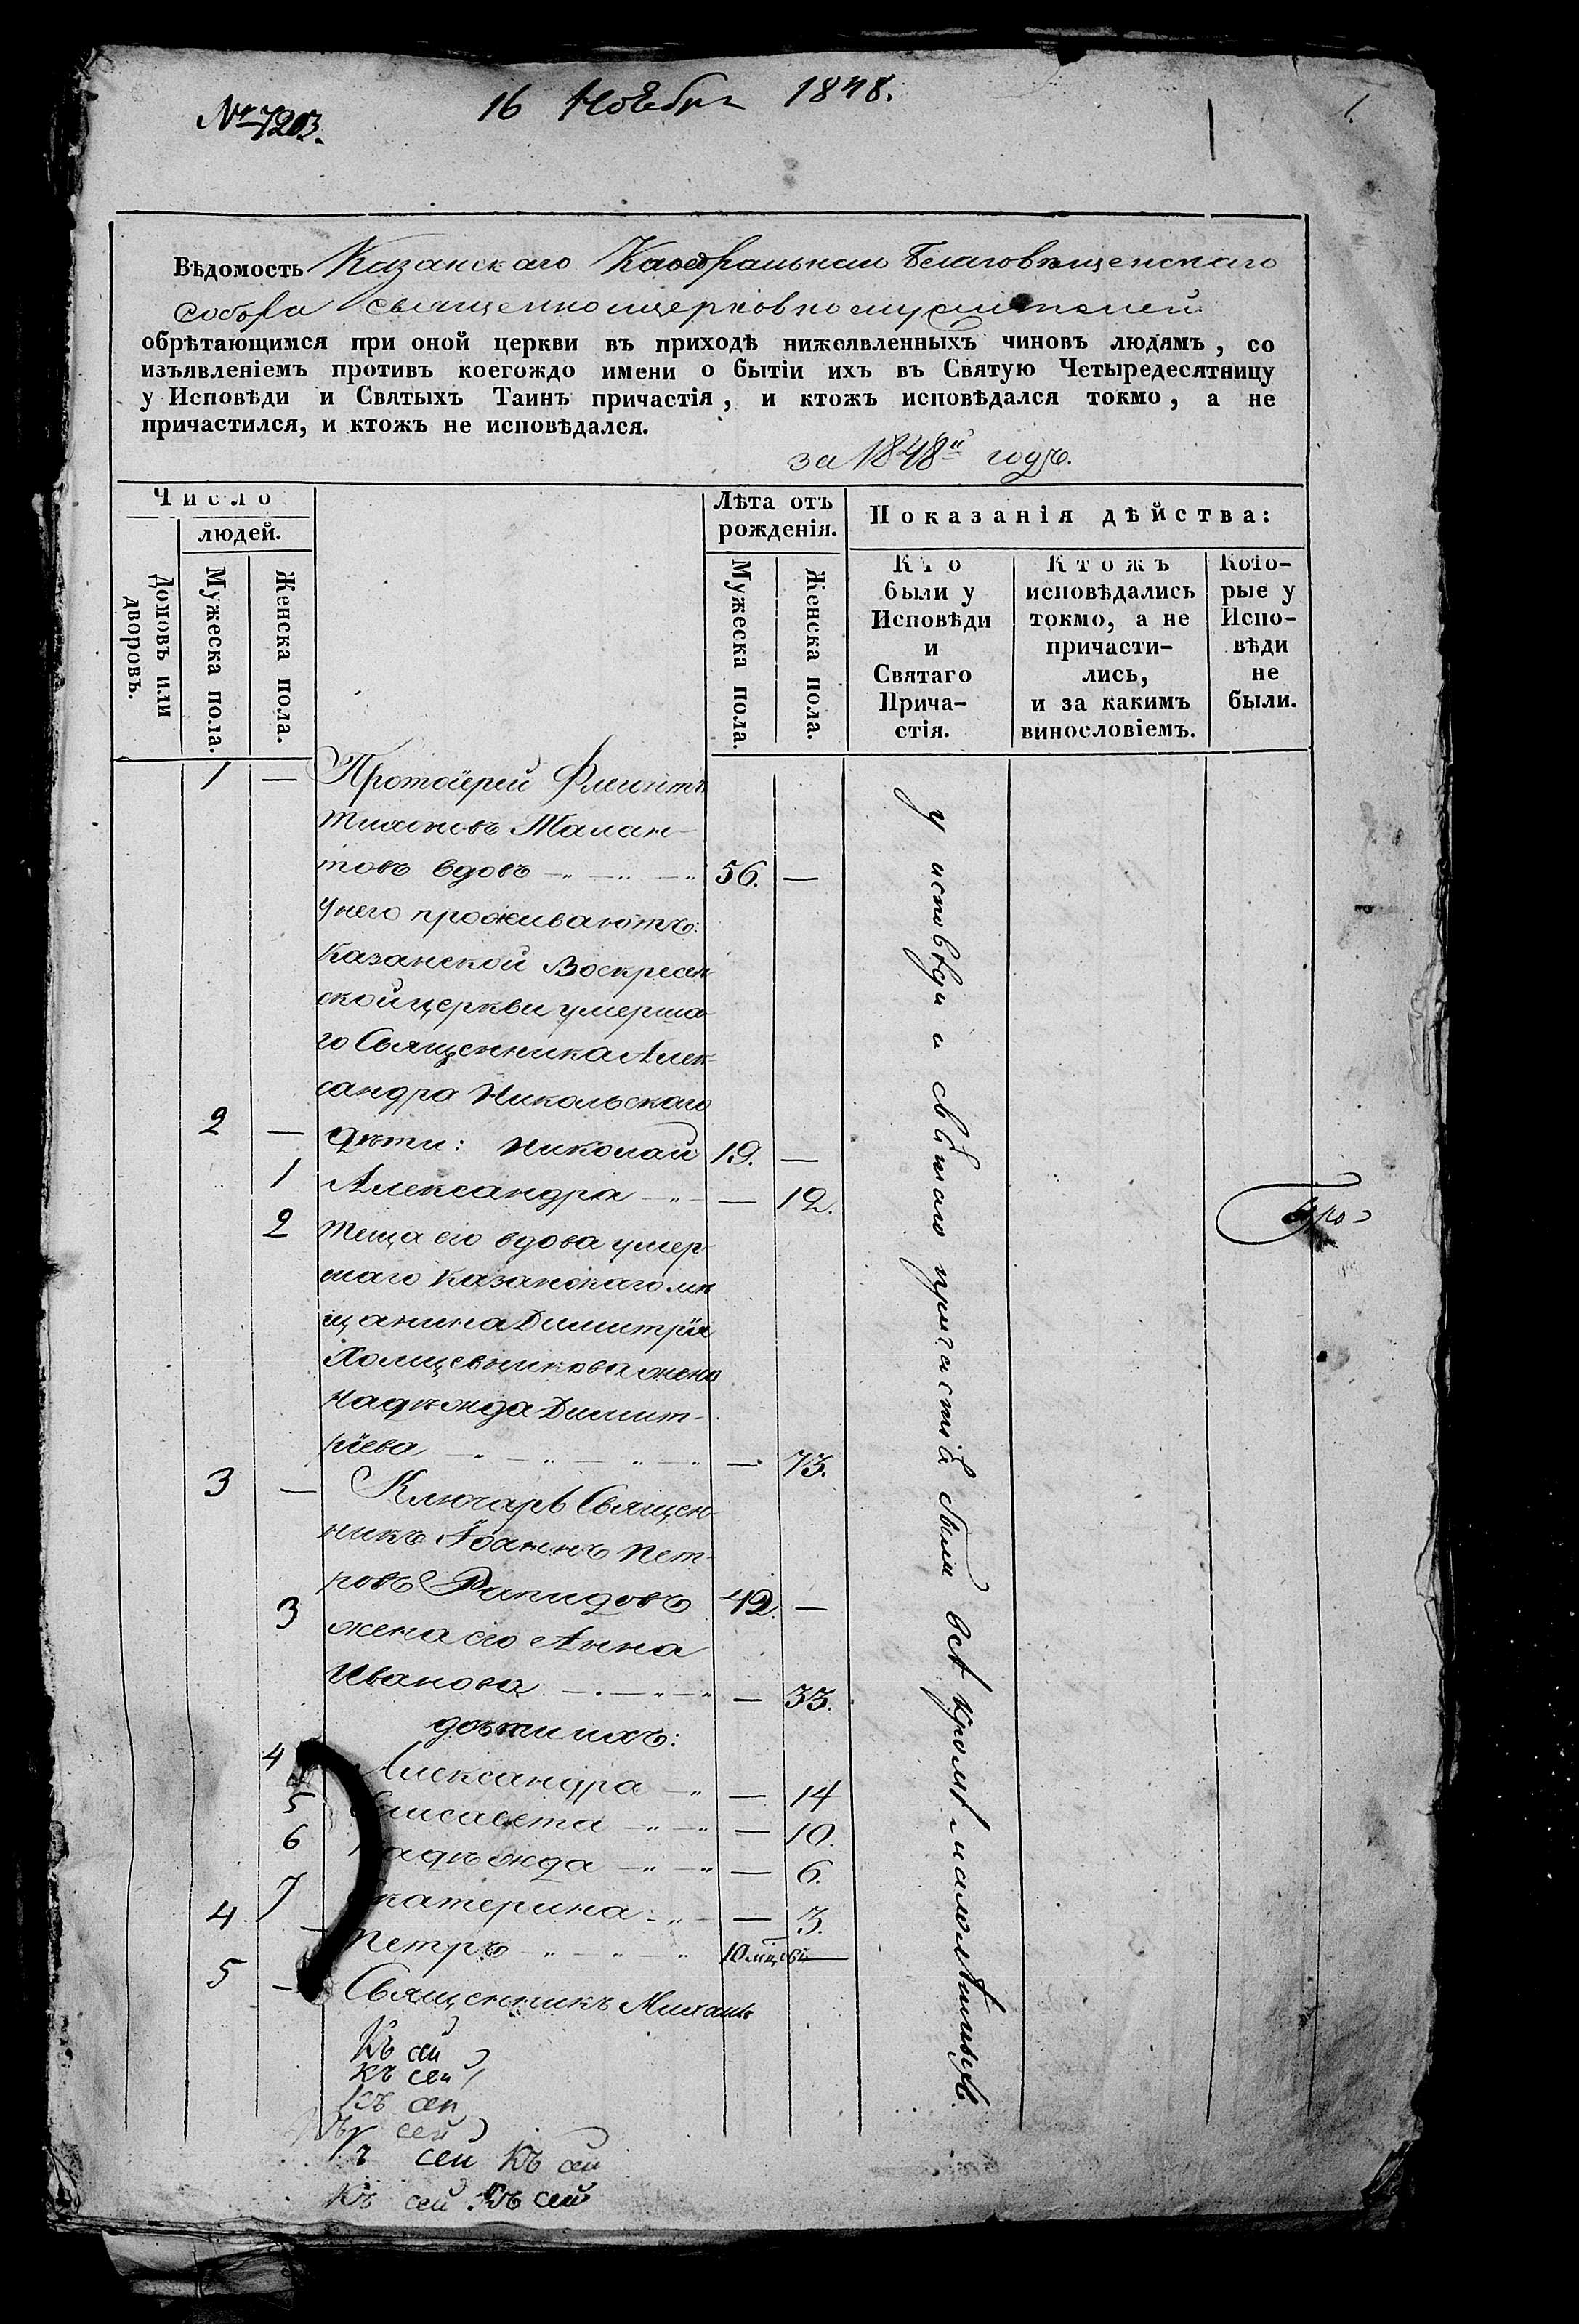 16 Ноября 1848.
№ 7203.
1.
Вѣдомость Казанскаго Каѳедральнаго Благовѣщенскаго
собора священноцерковнослужителей
обрѣтающимся при оной церкви въ приходѣ нижеявленныхъ чиновъ людямъ, со
изъявленіемъ противъ коегождо имени о бытіи ихъ въ Святую Четыредесятницу
у Исповѣди и Святыхъ Таинъ причастія, и ктожъ исповѣдался токмо, а не
причастился, и ктожъ не исповѣдался.
за 1848й годъ.
Число
людей.
Домовъ или дворовъ.
Мужеска пола.
Женска пола.
Лѣта отъ
рожденія.
Мужеска пола.
Женска пола.
Показанія дѣйства:
Кто
были у
Исповѣди
и
Святаго
Прича-
стія.
Ктожъ
исповѣдались
токмо, а не
причасти-
лись,
и за какимъ
винословіемъ.
Кото-
рые у
Испо-
вѣди
не
были.
1 — Протоіерей Флегонтъ
Тихоновъ Талан-
товъ вдовъ 56. —
У него проживаютъ:
Казанской Воскресен-
ской церкви умерша-
го Священника Алек-
сандра Никольскаго
2 — дѣти: Николай 19. —
1 Александра — 12.
2 теща его вдова умер-
шаго Казанскаго мѣ
щанина Димитрія
Холщевникова жена
Надѣжда Димит-
ріева — 73.
3 — Ключарь Священ-
никъ Іоаннъ Пет-
ровъ Рапидовъ 42. —
3 жена его Анна
Иванова — 33.
дѣти ихъ:
4 Александра — 14
5 Елисавета — 10.
6 Надѣжда — 6.
7 Екатерина — 3.
4 — Петръ 10 мцовъ —
5 — Священникъ Михаилъ
у исповѣди и святаго причастія были всѣ кромѣ малолѣтныхъ.
Къ сей
къ сей
къ сей
къ сей
къ сей къ сей
къ сей къ сей